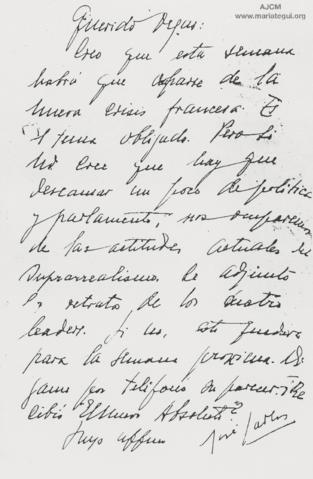 AJCM
www.mariategui.org
Querido Vegas:
Creo que esta semana
habrá que ocuparse de la
nueva crisis francesa. Es
el tema obligado. Pero si
Ud cree que hay que
descansar un poco de política
y parlamento, nos ocuparemos
de las actitudes actuales del
suprarrealismo. Le adjunto
los retratos de los cuatro
leaders. Si no, esto quedará
para la semana próxima. Dí-
game por teléfono su parecer. ¿Re-
cibió "El Nuevo Absoluto"?
Suyo affmo
José Carlos